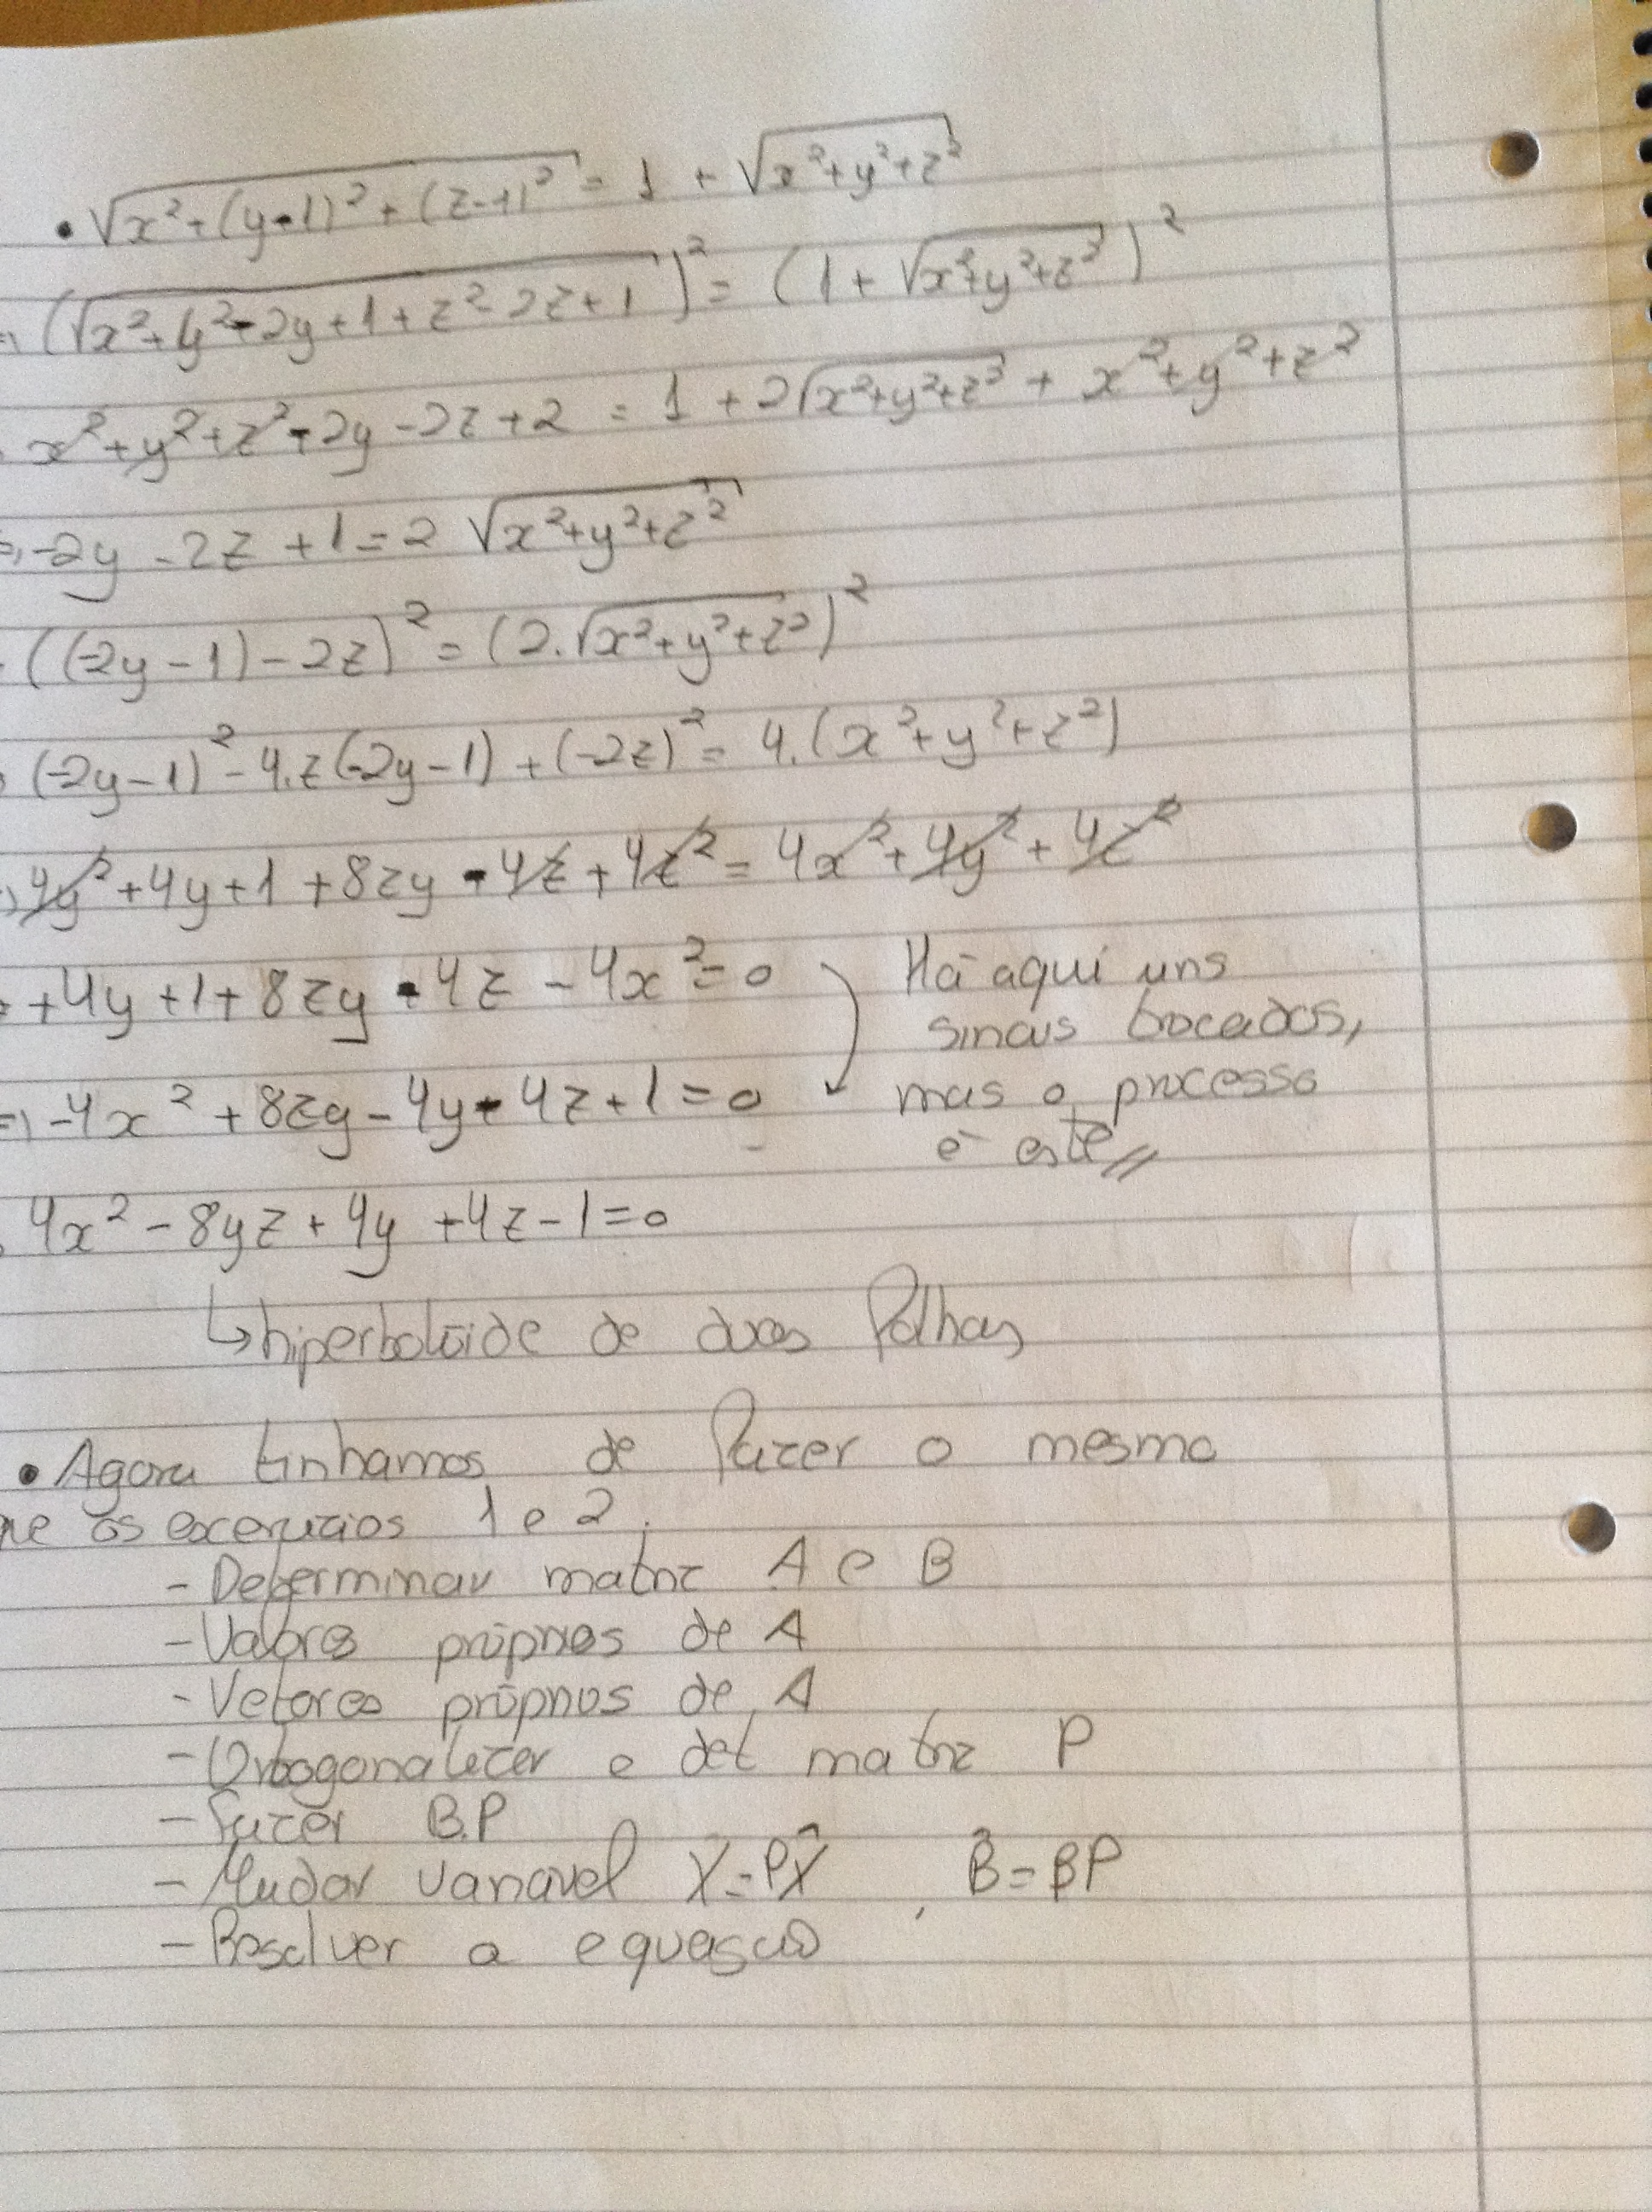 • √x²+(y-1)²+(z-1)² = 1 + √x²+y²+z²
⇒ (√x²+y²-2y+1+z²-2z+1)² = (1+√x²+y²+z²)²
x²+y²+z²-2y-2z+2 = 1+2√x²+y²+z² + x²+y²+z²
⇒ -2y-2z+1=2 √x²+y²+z²
((-2y-1)-2z)² = (2.√x²+y²+z²)²
(-2y-1)²-4.z(-2y-1)+(-2z)² = 4.(x²+y²+z²)
⇒ 4y²+4y+1+8zy-4z+4z² = 4x²+4y²+4z²
+4y+1+8zy-4z-4x²=0 Há aqui uns
sinais trocados,
⇒ -4x²+8zy-4y-4z+1=0 mas o processo
é este//
4x²-8yz+4y+4z-1=0
↳ hiperbolóide de duas folhas
• Agora tinhamos de fazer o mesmo
que os excercicios 1 e 2.
- Determinar matriz A e B
- Valores próprios de A
- Vetores próprios de A
- Ortogonalizer e det matriz P
- Fazer B.P
- Mudar variavel X=PX̂ , B̂=BP
- Resolver a equasão